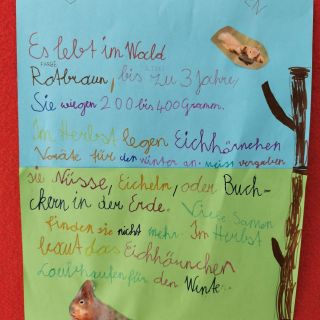 Es lebt im Woald
FARBE
Rotbraun, bis zu 3 Jahre,
Sie wiegen 200 bis 400 Gramm.
Im Herbst legen Eichhörnchen
Voräte für den winter an. meist vergraben
sie Nüsse, Eicheln, oder Buch-
ckern in der Erde. Viele Samen
finden sie nicht mehr. Im Herbst
baut das Eichhörnchen
Laubhaufen für den Winter.